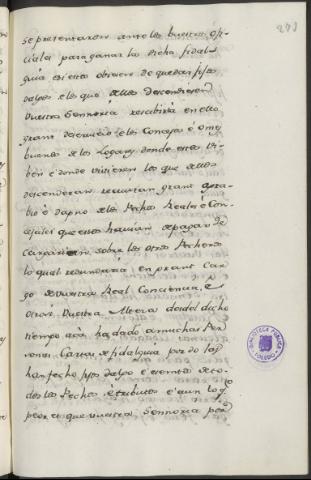 273
se presentaron ante les buenos ofi-
ciales para ganar la dicha fidal-
guia e si esto obiesen de quedar fijos
dalgos e les que dellos descendiesen
Vuestra Sennoria rescibiria en ello
grant deservicio e les Concejos e omes
buenos de los Logares donde estos vi-
ben e donde vivieren los que dellos
descenderan rescivirian grant agra-
bio e dapno e les Pechos Reales e Con-
cejales que estos havian de pagar se
cargarian sobre les otros Pecheros
lo qual redundaria en grant Car-
go de vuestra Real Conciencia, e
Otrosi Vuestra Altesa desdel dicho
tiempo aca ha dado a muchas Per-
sonas Cartas de fidalguia por do los
han fecho fijos dalgo e esentos de to-
dos los Pechos e tributos e aun lo q.e
peor es que vuestra Sennoria por
BIBLIOTECA PUBLICA
TOLEDO